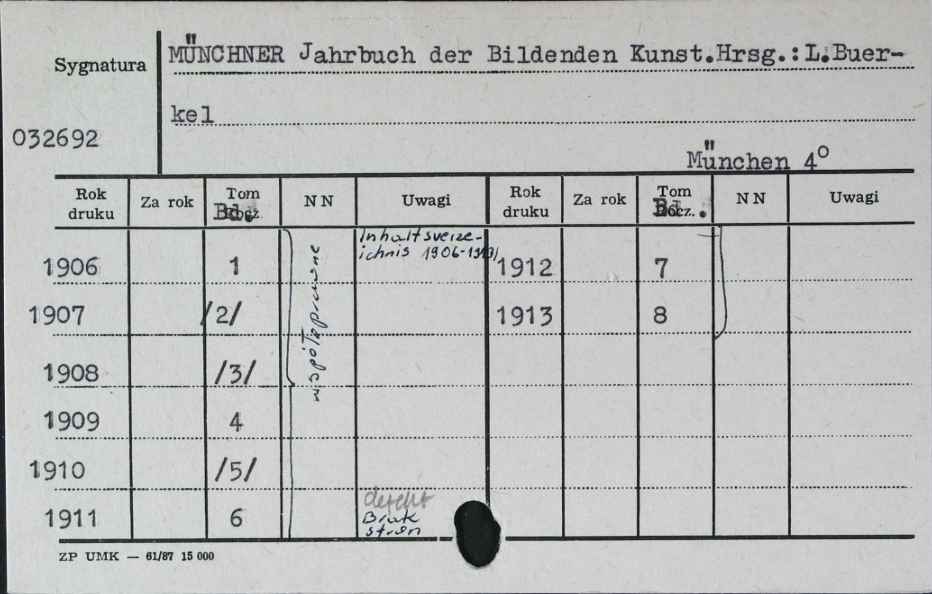 Sygnatura
MÜNCHNER Jahrbuch der Bildenden Kunst. Hrsg.: L. Buer-
kel
032692
München 4°
Rok druku Za rok Tom Bd. NN Uwagi Rok druku Za rok Tom Bd. NN Uwagi
1906 1 współoprawne Inhaltsverze- 1912 7
ichnis 1906-1911
1907 /2/ 1913 8
1908 /3/
1909 4
1910 /5/
1911 6 defekt
Brak
stron
ZP UMK — 61/87 15 000